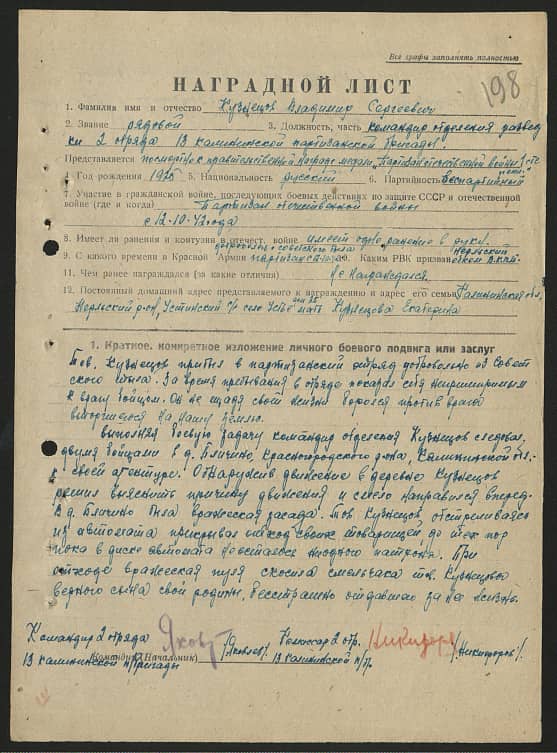 Все графы заполнять полностью
198
НАГРАДНОЙ ЛИСТ
1. Фамилия имя и отчество Кузнецов Владимир Сергеевич
2. Звание рядовой 3. Должность, часть командир отделения развед
ки 2 отряда 13 калининской партизанской бригады.
Представляется посмертно к правительственной награде медаль "Партизан отечественной войны" I сте
пени".
4. Год рождения 1925 5. Национальность русский 6. Партийность беспартийный
7. Участие в гражданской войне, последующих боевых действиях по защите СССР и отечественной
войне (где и когда) Партизан отечественной войны
с 12-10-42 года
8. Имеет ли ранения и контузии в отечест. войне имеет одно ранение в руки.
9. С какого времени в Красной Армии 10. Каким РВК призван Нерльским
11. Чем ранее награждался (за какие отличия) Не награждался.
12. Постоянный домашний адрес представляемого к награждению и адрес его семьи Калининская обл.
Нерльский р-он, Устинский с/с село Устье мать Кузнецова Екатерина
1. Краткое, конкретное изложение личного боевого подвига или заслуг
Тов. Кузнецов прибыл в партизанский отряд добровольно из Совет
ского тыла. За время пребывания в отряде показал себя непримиримым
к врагу бойцом. Он не щадя свой жизни боролся против врага
вторгшегося на нашу землю.
Выполняя боевую задачу командир отделения Кузнецов следовал
двумя бойцами в д. Блячино, Красногородского р-она, Калининской обл.
к своей агентуре. Обнаружив движение в деревне Кузнецов
решил выяснить причину движения и смело направился вперед.
В д. Блячино была вражеская засада. Тов. Кузнецов, отстреливаясь
из автомата прикрывал отход своих товарищей до тех пор
пока в диске автомата не осталось ни одного патрона. При
отходе вражеская пуля скосила смельчака тов. Кузнецова
верного сына свой родины, бесстрашно отдавшего за нее жизнь.
Командир 2 отряда Яков /Яковлев/ Комиссар 2 отр. Никифоров /Никифоров/.
13 калининской п/бригады Командир (Начальник) 13 калининской п/бр.